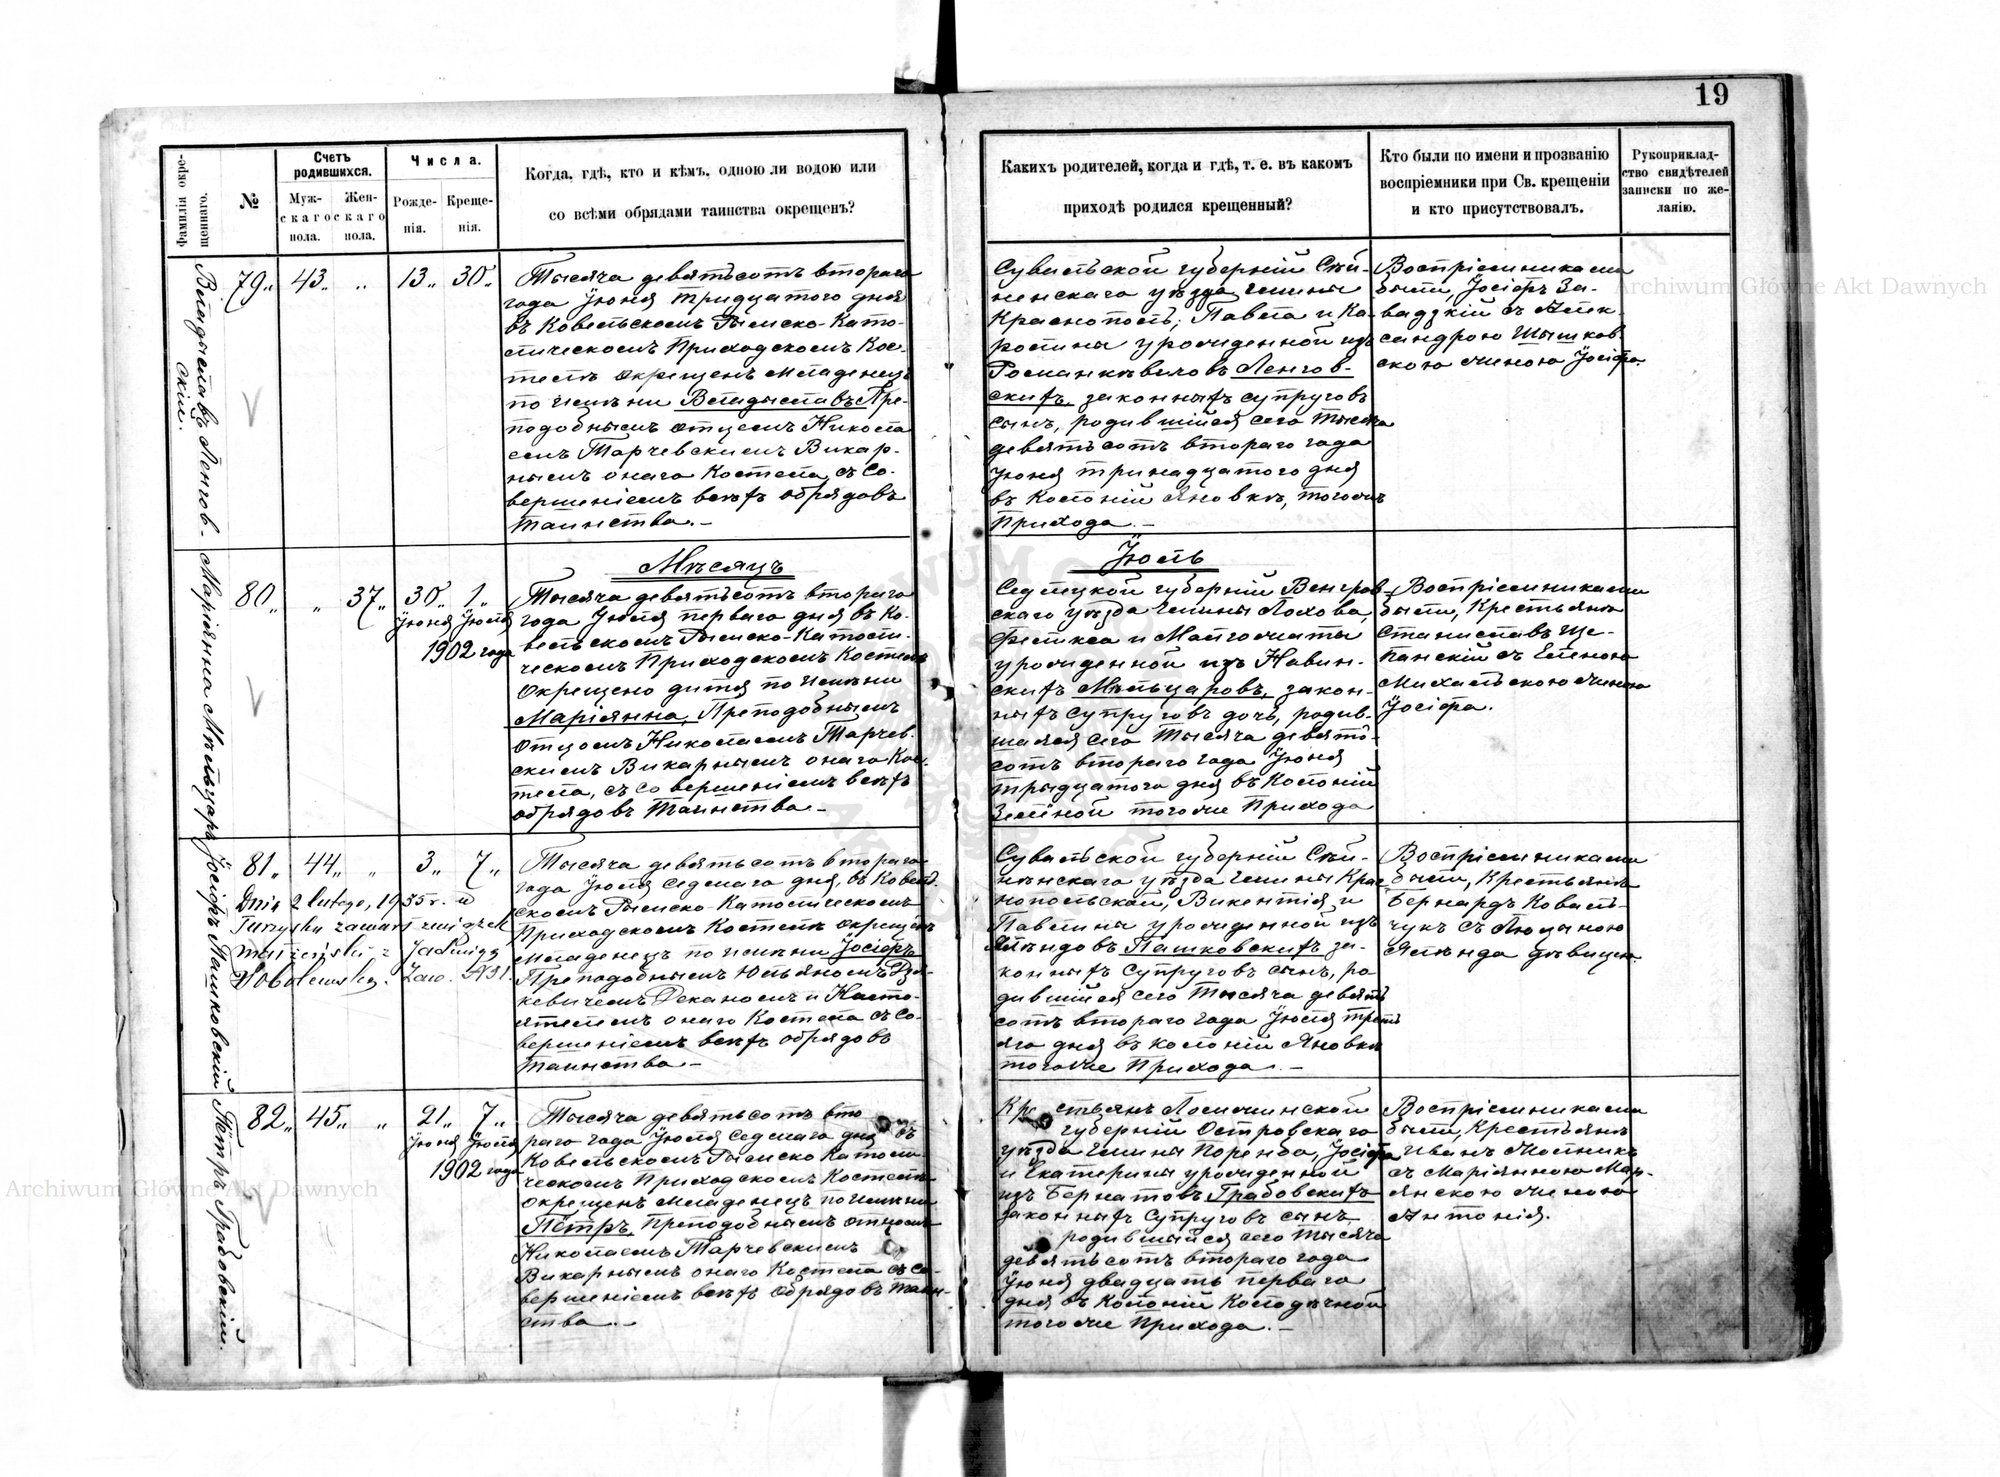 19
Фамилія окре-
щеннаго.
№
Счетъ
родившихся.
Муж-
скаго
пола.
Жен-
скаго
пола.
Числа.
Рожде-
нія.
Креще-
нія.
Когда, гдѣ, кто и кѣмъ, одною ли водою или
со всѣми обрядами таинства окрещенъ?
Какихъ родителей, когда и гдѣ, т. е. въ какомъ
приходѣ родился крещенный?
Кто были по имени и прозванію
воспріемники при Св. крещеніи
и кто присутствовалъ.
Рукоприклад-
ство свидѣтелей
записки по же-
ланію.
Владыславъ Ленгов-
скій.
79.
43.
"
13.
30.
Тысяча девятьсотъ втораго
года Іюня тридцатого дня
въ Ковельскомъ Рымско-Като-
лическомъ Приходскомъ Кос-
телѣ окрещенъ младенецъ
по имени Владыславъ Пре-
подобнымъ отцемъ Никола
емъ Тарчевскимъ Викар-
нымъ онаго Костела, съ со-
вершеніемъ всѣхъ обрядовъ
Таинства. —
Сувальской губерній Сѣй-
ненскаго уѣзда гмины
Краснополь, Павла и Ка-
ролины урожденной изъ
Романкѣвеловъ Ленгов-
скихъ, законныхъ супруговъ
сынъ, родившійся сего тысяча
девятьсотъ втораго года
Іюня тринадцатого дня
въ Колоній Яновкѣ, тогожъ
Прихода. —
Воспріемниками
были, Іосифъ За-
вадзкій съ Алек-
сандрою Шышков-
ской женою Іосифа.
Мѣсяцъ
Іюль
Маріянна Мѣльцаръ
80.
"
37.
30.
1.
Іюня Іюля
1902 года
Тысяча девятьсотъ втораго
года Іюля перваго дня въ Ко-
вельскомъ Рымско-Католи-
ческомъ Приходскомъ Костелѣ
Окрещено дитя по имени
Маріянна, Преподобнымъ
отцомъ Николаемъ Тарчев-
скимъ Викарнымъ онаго Кос-
тела, съ совершеніемъ всѣхъ
обрядовъ Таинства —
Седлецкой губерній Венгров-
скаго уѣзда гмины Лохова,
Феликса и Малгожаты
урожденной изъ Навин-
скихъ Мѣльцаровъ, закон-
ныхъ супруговъ дочь, родив-
шаяся сего Тысяча девять-
сотъ втораго года Іюня
тридцатого дня въ Колоній
Зелёной того же Прихода
Воспріемниками
были, Крестьяне
Станиславъ Ще-
панскій съ Еленою
Михальскою женою
Іосифа.
Іосифъ Пашковскій
81.
44.
"
3.
7.
Dnia 2 lutego, 1935 r. w
Turzysku zawarł związek
małżeński z Jadwigą
Sobolewską. Zaw. N 31.
Тысяча девятьсотъ втораго
года Іюля седмаго дня, въ Ковель-
скомъ Рымско-Католическомъ
Приходскомъ Костелѣ окрещенъ
младенецъ по имени Іосифъ
Преподобнымъ Юльяномъ
кевичемъ Деканомъ и Насто-
ятелемъ онаго Костела съ со-
вершеніемъ всѣхъ обрядовъ
Таинства —
Сувальской губерній Сѣй-
нѣнскаго уѣзда гмины Крас-
нопольской, Викентія и
Павлины урожденной изъ
Пашковскихъ за-
конныхъ супруговъ сынъ, ро
дившійся сего Тысяча девять
сотъ втораго года Іюля треть
яго дня въ колоній Яновкѣ
того же Прихода. —
Воспріемниками
были, Крестьяне
Бернардъ Коваль-
чукъ съ Люцыною
дѣвицею.
Пётръ Грабовскій.
82.
45.
"
21.
7.
Іюня Іюля
1902 года
Тысяча девятьсотъ вто
раго года Іюля седмаго дня въ
Ковельскомъ Рымско Католи-
ческомъ Приходскомъ Костелѣ
окрещенъ младенецъ по имени
Пётръ, Преподобнымъ отцомъ
Николаемъ Тарчевскимъ
Викарнымъ онаго Костела съ со-
вершеніемъ всѣхъ обрядовъ Таин-
ства. —
Крестьянъ Ломжинской
губерній Островскаго
уѣзда гмины Поремба, Іосифа
и Екатерины урожденной
изъ Бернатовъ Грабовскихъ
законныхъ супруговъ сынъ
родившыйся сего тысяча
девятьсотъ втораго года
Іюня двадцать перваго
дня въ Колоній Колодѣчной
того же Прихода. —
Воспріемниками
были, Крестьяне
Иванъ
съ Маріянною Мар-
янскою женою
Антонія.
Archiwum Główne Akt Dawnych
Archiwum Główne Akt Dawnych